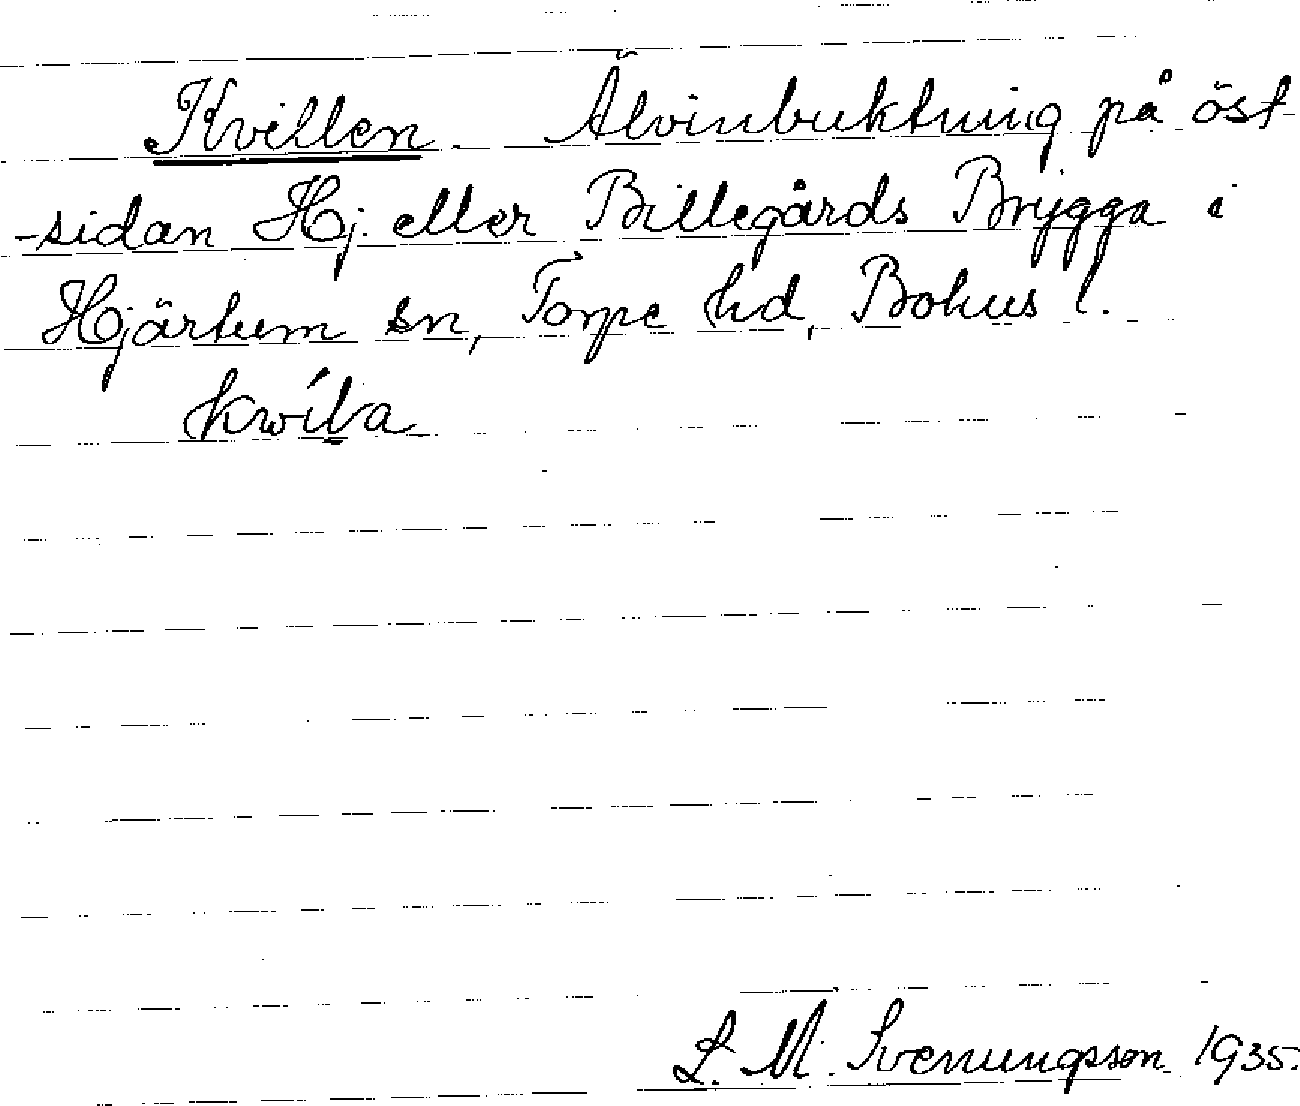 Kvillen Älvinbuktning på öst-
-sidan Hj. eller Billegårds Brygga i
Hjärtum sn, Torpe hd, Bohus l.
kwíḷa
L. M. Svenungsson 1935.